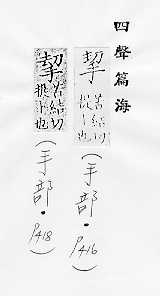 四聲篇海
挈 苦結切
提 也
(手部·P416)
挈 苦結切
提 也
(手部·P418)